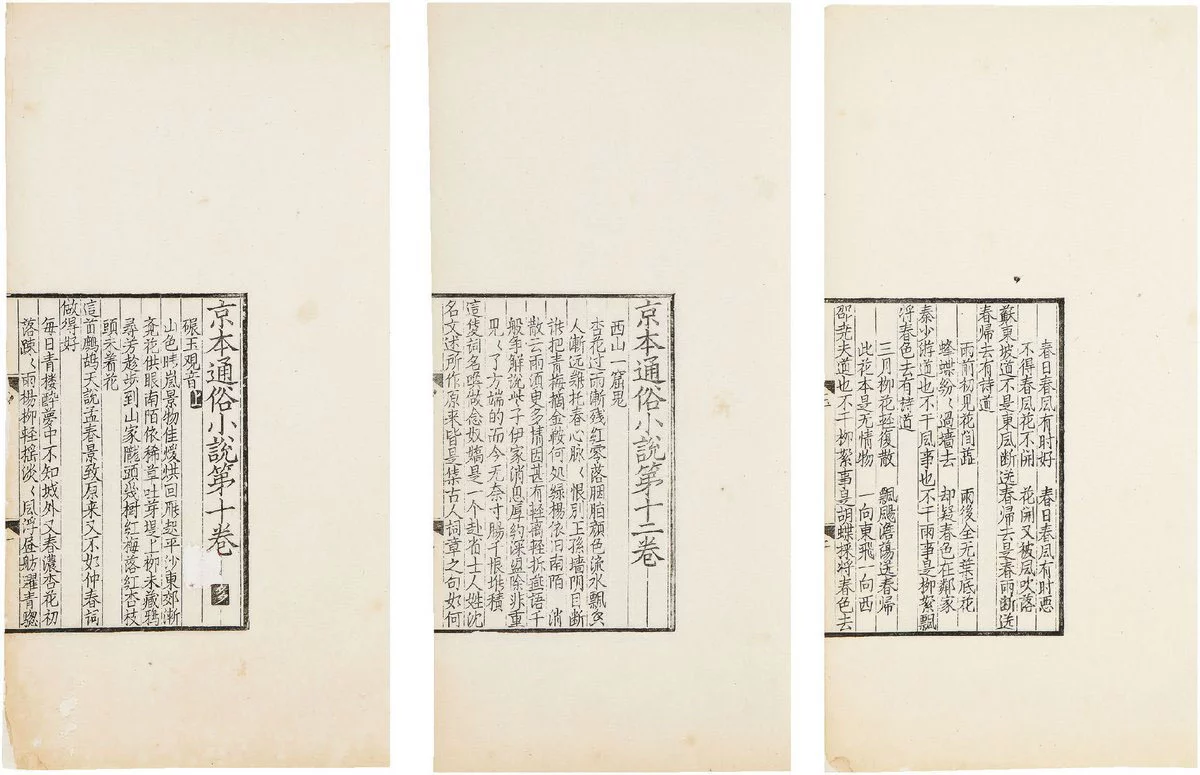 京本通俗小說第十卷
碾玉观音上
山色晴嵐景物佳煖烘回雁起平沙東郊漸
竟花供眼南陌依稀草吐芽堤上柳未藏鴉
尋芳趂步到山家隴頭幾樹紅梅落紅杏枝
頭未着花
這首鷓鴣天說孟春景致原来又不如仲春詞
做得好
每日青楼醉夢中不知城外又春濃杏花初
落踈〻雨楊柳輕搖淡〻風浮畫舫躍青驄
京本通俗小說第十二卷
西山一窟鬼
杏花过雨漸殘紅零落胭脂顔色流水飄香
人漸远难托春心脉〻恨别王孫墙阴目断
誰把青梅摘金鞍何处綠楊依旧南陌 消
散云雨須臾多情因甚有輕离輕拆燕语千
般争解說些子伊家消息厚约深盟除非重
見〻了方端的而今无奈寸肠千恨堆積
這隻詞名喚做念奴嬌是一个赴省士人姓沈
名文述所作原来皆是集古人詞章之句如何
春日春風有时好 春日春風有时恶
不得春風花不開 花開又被風吹落
蘇東坡道不是東風断送春帰去是春雨断送
春帰去有詩道
雨前初見花间蕋 雨後全无葉底花
蜂蝶纷〻过墙去 却疑春色在鄰家
秦少游道也不干風事也不干雨事是柳絮飄
将春色去有詩道
三月柳花輕復散 飄颺澹蕩送春帰
此花本是无情物 一向東飛一向西
邵尧夫道也不干柳絮事是胡蝶採将春色去